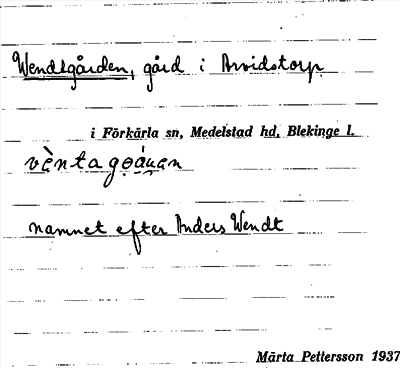 Wendtgården, gård i Arvidstorp
i Förkärla sn, Medelstad hd, Blekinge l.
vèntagǫáu̯an
namnet efter Anders Wendt
Märta Pettersson 1937